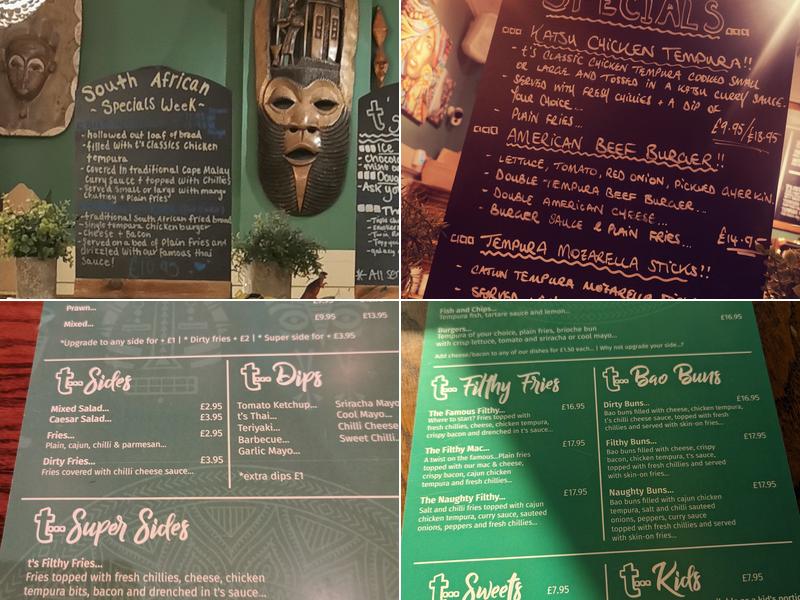 South African
~ Specials Week ~
- hollowed out loaf of bread
- filled with t's Classics Chicken
tempura
- Covered in traditional Cape Malay
Curry Sauce + topped with Chillies
- Served Small or large with mango
Chutney + Plain fries
- traditional South African fried bread
- Single tempura chicken burger
- Cheese + Bacon
- Served on a bed of Plain fries and
drizzled with our famous thai
Sauce!
t's
Ice
SPECIALS
KATSU CHICKEN TEMPURA!!
- t'S CLASSIC CHICKEN TEMPURA COOKED SMALL
OR LARGE AND TOSSED IN A KATSU CURRY SAUCE.
- SERVED WITH FRESH CHILLIES + A DIP OF
YOUR CHOICE...
- PLAIN FRIES...
£9.95/£13.95
AMERICAN BEEF BURGER!!
- LETTUCE, TOMATO, RED ONION, PICKLED GHERKIN.
- DOUBLE TEMPURA BEEF BURGER...
- DOUBLE AMERICAN CHEESE...
- BURGER SAUCE & PLAIN FRIES...
£14.95
TEMPURA MOZARELLA STICKS!!
- CAJUN TEMPURA MOZARELLA STICKS
Prawn...
Mixed... £9.95 £13.95
*Upgrade to any side for + £1 | * Dirty fries + £2 | * Super side for + £3.95
t... Sides
Mixed Salad... £2.95
Caesar Salad... £3.95
Fries... £2.95
Plain, cajun, chilli & parmesan...
Dirty Fries... £3.95
Fries covered with chilli cheese sauce...
t... Dips
Tomato Ketchup... Sriracha Mayo
t's Thai... Cool Mayo...
Teriyaki... Chilli Cheese
Barbecue... Sweet Chilli
Garlic Mayo...
*extra dips £1
t... Super Sides
t's Filthy Fries...
Fries topped with fresh chillies, cheese, chicken
tempura bits, bacon and drenched in t's sauce...
Fish and Chips...
Tempura fish, tartare sauce and lemon...
Burgers... £16.95
Tempura of your choice, plain fries, brioche bun
with crisp lettuce, tomato and sriracha or cool mayo...
Add cheese/bacon to any of our dishes for £1.50 each... | Why not upgrade your side...?
t... Filthy Fries
The Famous Filthy... £16.95
Where to start? Fries topped with
fresh chillies, cheese, chicken tempura,
crispy bacon and drenched in t's sauce...
The Filthy Mac... £17.95
A twist on the famous...Plain fries
topped with our mac & cheese,
crispy bacon, cajun chicken
tempura and fresh chillies...
The Naughty Filthy... £17.95
Salt and chilli fries topped with cajun
chicken tempura, curry sauce, sauteed
onions, peppers and fresh chillies...
t... Bao Buns
Dirty Buns... £16.95
Bao buns filled with cheese, chicken tempura,
t's chilli cheese sauce, topped with fresh
chillies and served with skin-on fries...
Filthy Buns... £17.95
Bao buns filled with cheese, crispy
bacon, chicken tempura, t's sauce,
topped with fresh chillies and served
with skin-on fries...
Naughty Buns... £17.95
Bao buns filled with cajun chicken
tempura, salt and chilli sauteed
onions, peppers, curry sauce
topped with fresh chillies and served
with skin-on fries...
t... Sweets £7.95
t... Kids £7.95